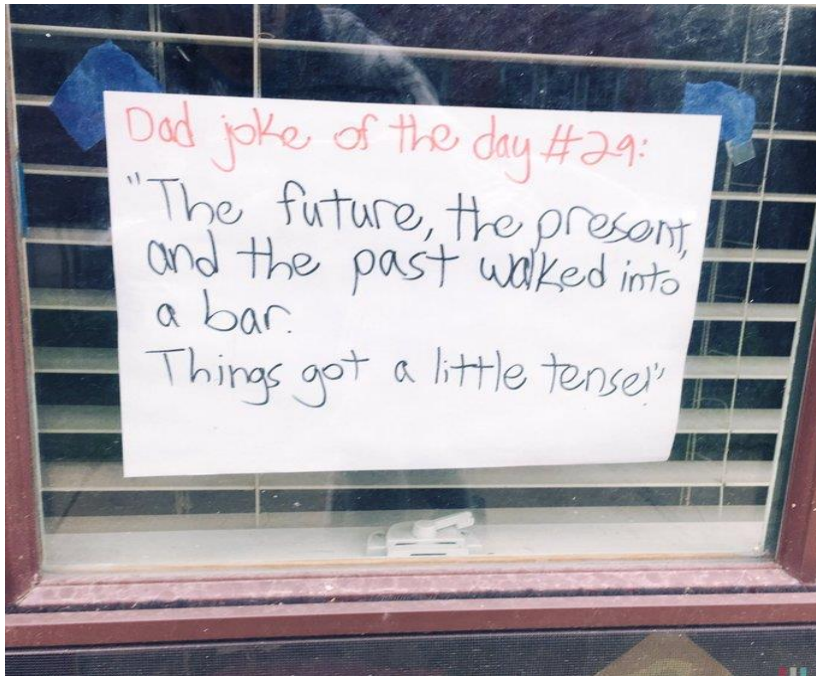 Dad joke of the day #29:
"The future, the present,
and the past walked into
a bar.
Things got a little tense!"